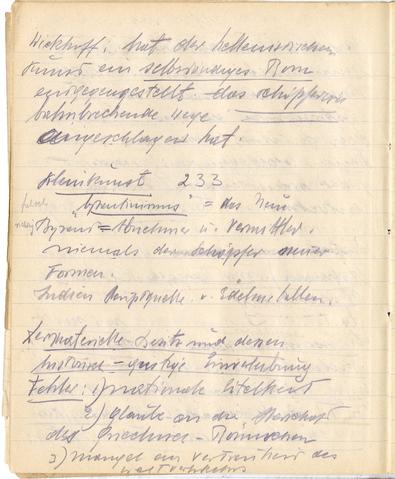 Wickhoff: hat der hellenistischen
Kunst ein selbständiges Rom
entgegengestellt das schöpferisch
bahnbrechende Wege
eingeschlagen hat.
Kleinkunst 233
falsch "Byzantinismus" = das Neue
Byzanz = Abnehmer u. Vermittler.
niemals der Schöpfer neuer
Formen.
Indien Hauptquelle v. Edelmetallen.
und deren
historisch = geistige
Fehler: 1) nationale Eitelkeit
2) glaube an die Herrschaft
des Griechisch-Römischen
3) mangel an Vertrautheit des
Weltverkehrs